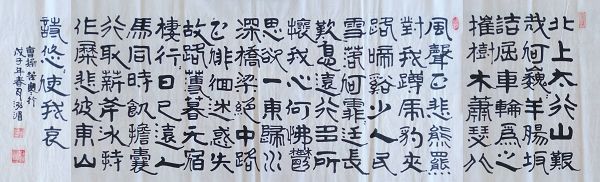 北上太行山艱
哉何巍羊腸坂
詰屈車輪為之
摧樹木蕭瑟北
風聲正悲熊羆
對我蹲虎豹夾
路啼谿少人民
雪落何霏延長
歎息遠行多所
懷我心何怫鬱
思欲一東歸水
深橋梁絕中路
正徘徊迷惑失
故路薄暮无宿
棲行日已遠人
馬同時飢擔囊
行取薪斧冰持
作糜悲彼東山
詩悠使我哀
曹操苦寒行
戊子年春月